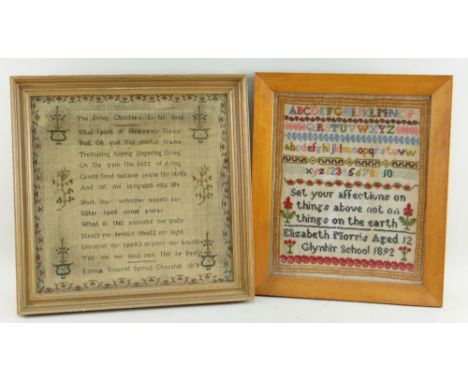 The dying Christian to his Soul
Vital spark of Heavenly flame
Quit Oh quit this mortal frame
Trembling hoping lingering flying
Oh the pain the bliss of dying
Cease fond nature cease the strife
And let me languish into life
Hark they whisper angels say
Sister Spirit come away
What is this absorbs me quite
Steals my senses shuts my sight
Drowns my spirits draws my breath
Tell me my Soul can this be Death
Emma Vincent
ABCDEFGHIJKLMNOP
QRSTUVWXYZ
abcdefghijklmnopqrstuvw
xyz12345678 10
Set your affections on
things above not on
things on the earth
Elizabeth Morris Aged 12
Glynhir School 1892